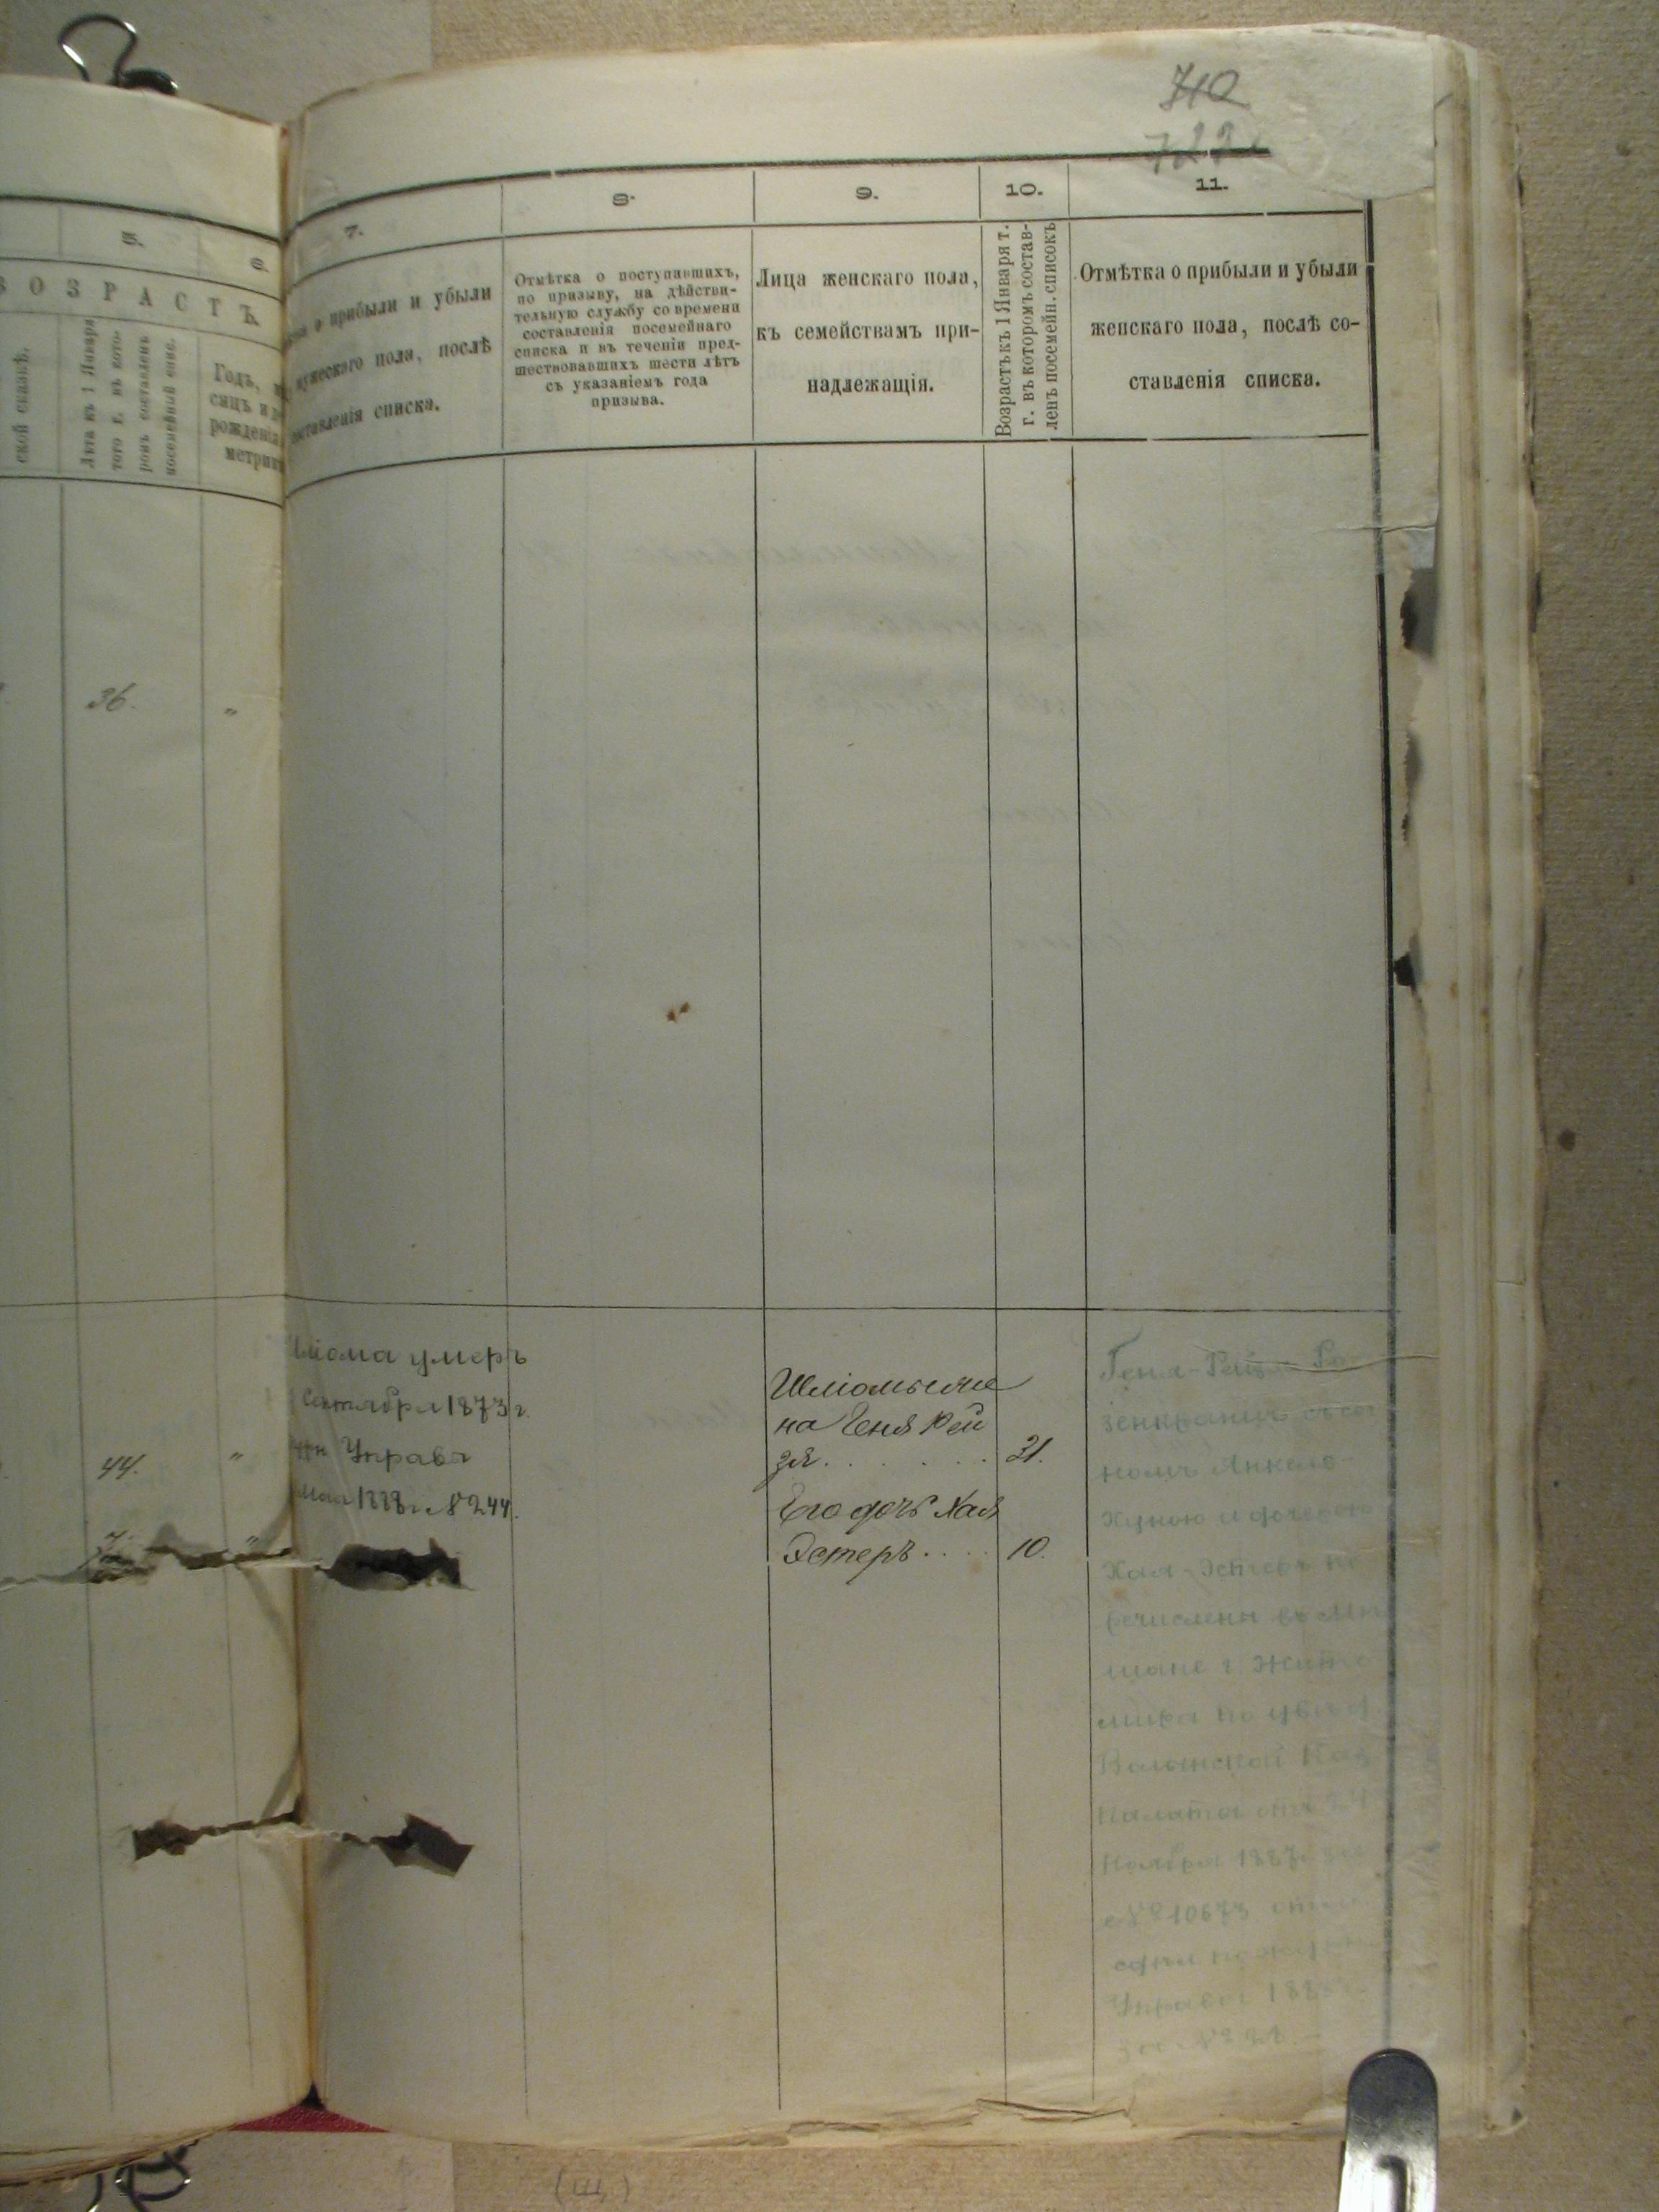 710
5.
6.
7.
8.
9.
10.
11.
ВОЗРАСТЪ.
ской сказкѣ.
Лѣта къ 1 Января
того г. въ кото-
ромъ составленъ
посемейный спис.
Годъ,
рожденія
метрик
о прибыли и убыли
мужескаго пола, послѣ
составленія списка.
Отмѣтка о поступившихъ,
по призыву, на дѣйстви-
тельную службу со времени
составленія посемейнаго
списка и въ теченіи пред-
шествовавшихъ шести лѣтъ
съ указаніемъ года
призыва.
Лица женскаго пола,
къ семействамъ при-
надлежащія.
Возрастъ къ 1 Января т.
г. въ которомъ состав-
ленъ посемейн. списокъ
Отмѣтка о прибыли и убыли
женскаго пола, послѣ со-
ставленія списка.
36. "
44. "
7. "
умеръ
Сентября 1873 г.
Управы
Мая 1888 г. №244.
Шліомы же
на Геня Рей
зя. . . . . . . 31.
Его дочь Хая
Эстеръ . . . . 10.
Геня-Рейзя Ро
зенкранцъ съ сы
номъ Янкель-
Хуною и дочерью
Хая-Эстеръ пе
речислены въ мѣ
щане г. Жито
мира по увѣд.
Волынской Каз
Палаты отъ 24
Ноября 1887 г. за
№10673
Управы 188
за №28.-
(Щ)